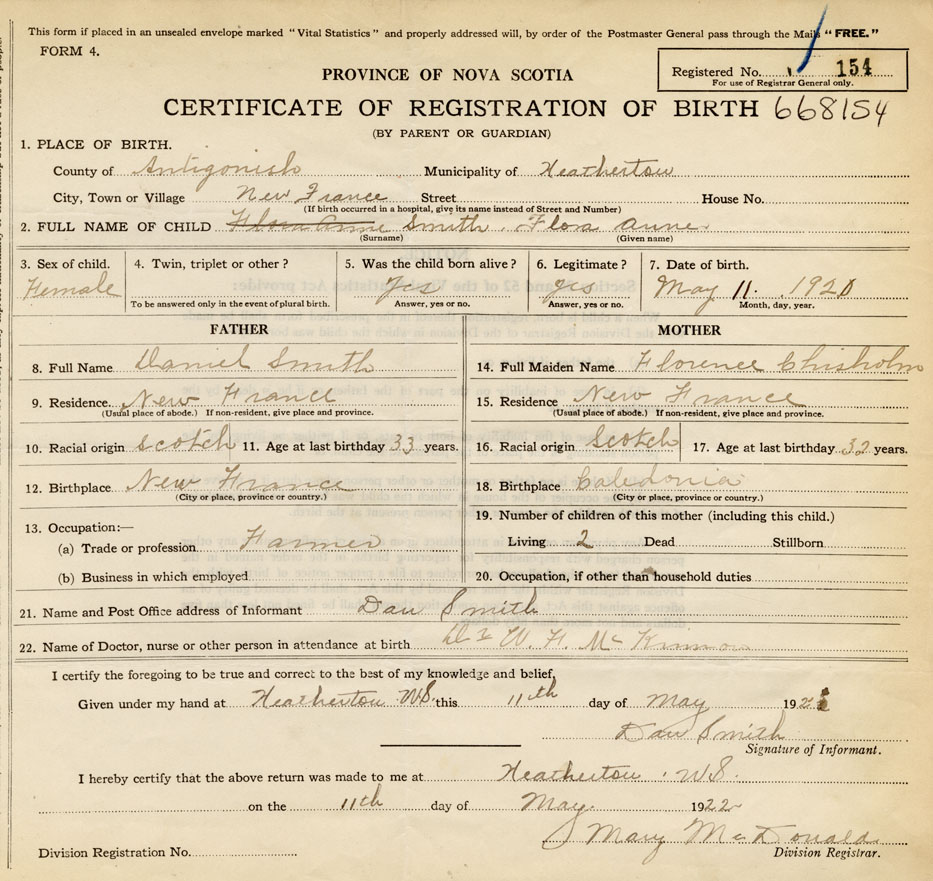 This form if placed in an unsealed envelope marked "Vital Statistics" and properly addressed will, by order of the Postmaster General pass through the Mails "FREE."
FORM 4.
Registered No. 154
For use of Registrar General only.
PROVINCE OF NOVA SCOTIA
CERTIFICATE OF REGISTRATION OF BIRTH 668154
(BY PARENT OR GUARDIAN)
1. PLACE OF BIRTH.
County of Antigonish Municipality of Heatherton
City, Town or Village New France Street House No.
(If birth occurred in a hospital, give its name instead of Street and Number)
2. FULL NAME OF CHILD Flora Anne Smith. Flora Anne
(Surname) (Given name)
3. Sex of child. 4. Twin, triplet or other? 5. Was the child born alive? 6. Legitimate? 7. Date of birth.
Female Yes Yes May 11. 1920
To be answered only in the event of plural birth. Answer, yes or no. Answer, yes or no. Month, day, year.
FATHER
8. Full Name Daniel Smith
9. Residence New France
(Usual place of abode.) If non-resident, give place and province.
10. Racial origin Scotch 11. Age at last birthday 33 years.
12. Birthplace New France
(City or place, province or country.)
13. Occupation:—
(a) Trade or profession Farmer
(b) Business in which employed
MOTHER
14. Full Maiden Name Florence Chisholm
15. Residence New France
(Usual place of abode.) If non-resident, give place and province.
16. Racial origin Scotch 17. Age at last birthday 32 years.
18. Birthplace Caledonia
(City or place, province or country.)
19. Number of children of this mother (including this child.)
Living 2 Dead Stillborn
20. Occupation, if other than household duties
21. Name and Post Office address of Informant Dan Smith
22. Name of Doctor, nurse or other person in attendance at birth Dr W. F. McKinnon
I certify the foregoing to be true and correct to the best of my knowledge and belief,
Given under my hand at Heatherton NS. this 11th day of May 192
Dan Smith
Signature of Informant.
I hereby certify that the above return was made to me at Heatherton. NS.
on the 11th day of May. 1922
Mary McDonald
Division Registrar.
Division Registration No.